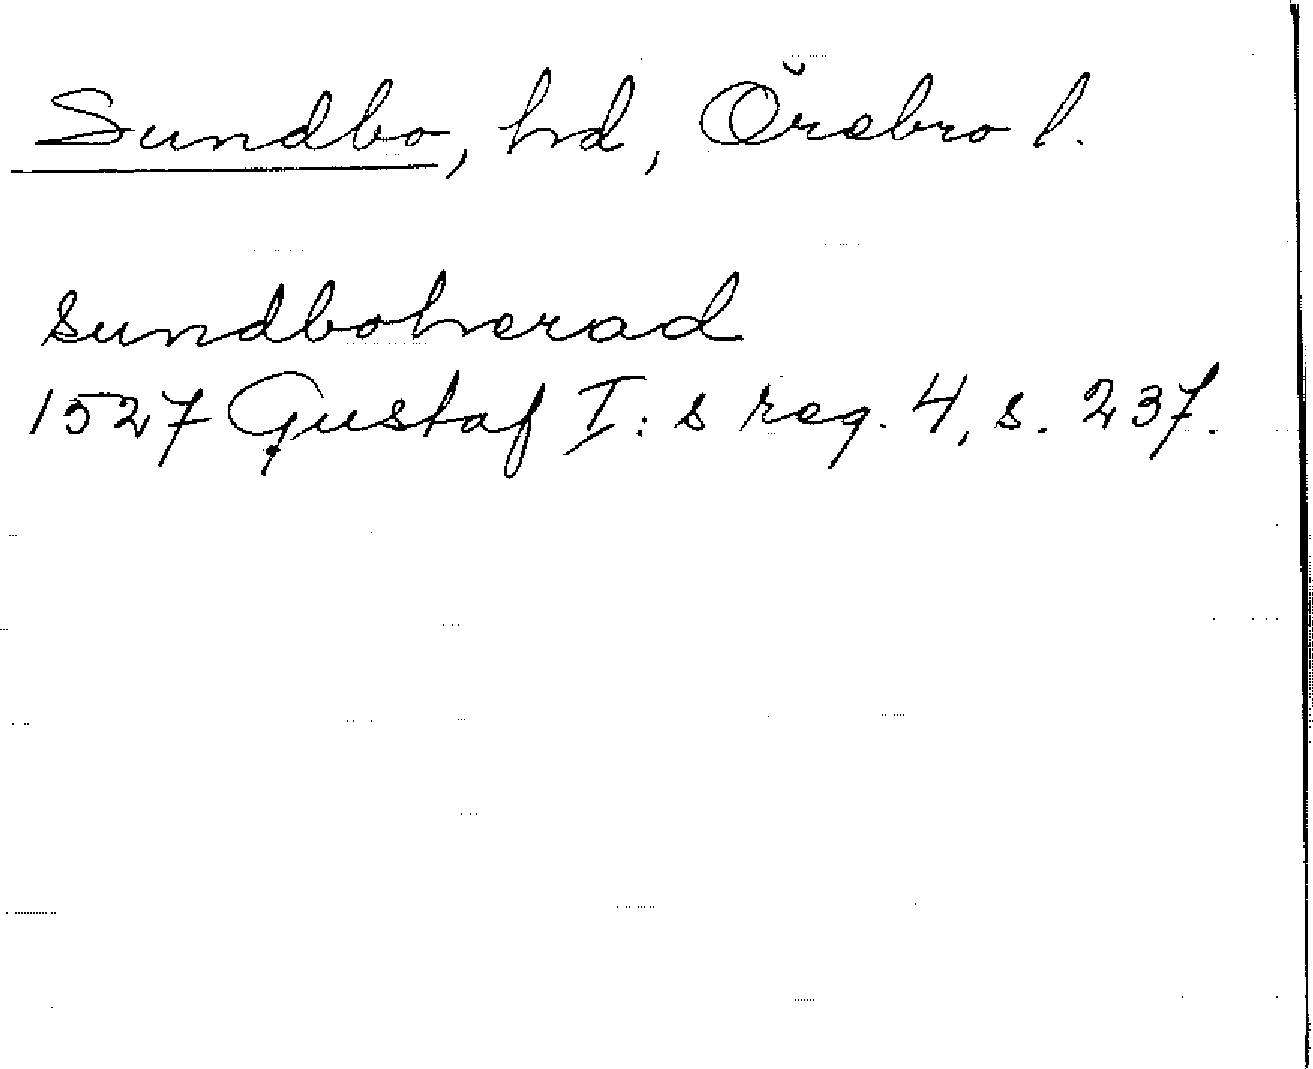 Sundbo, hd, Örebro l.
sundboherad
1527 Gustaf I: s reg. 4, s. 237.